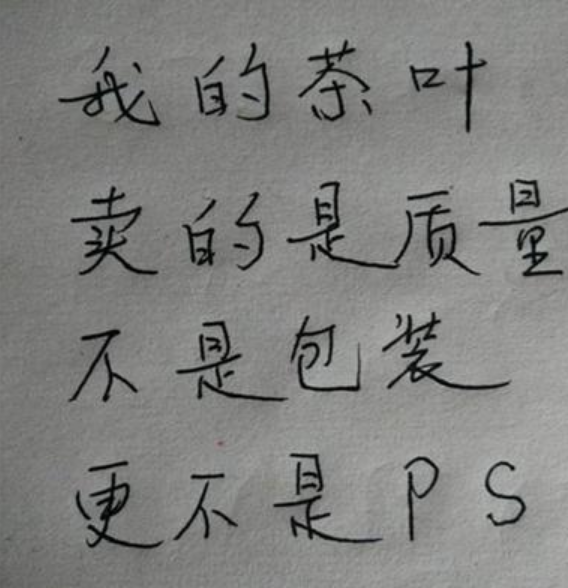 我的茶叶
卖的是质量
不是包装
更不是PS